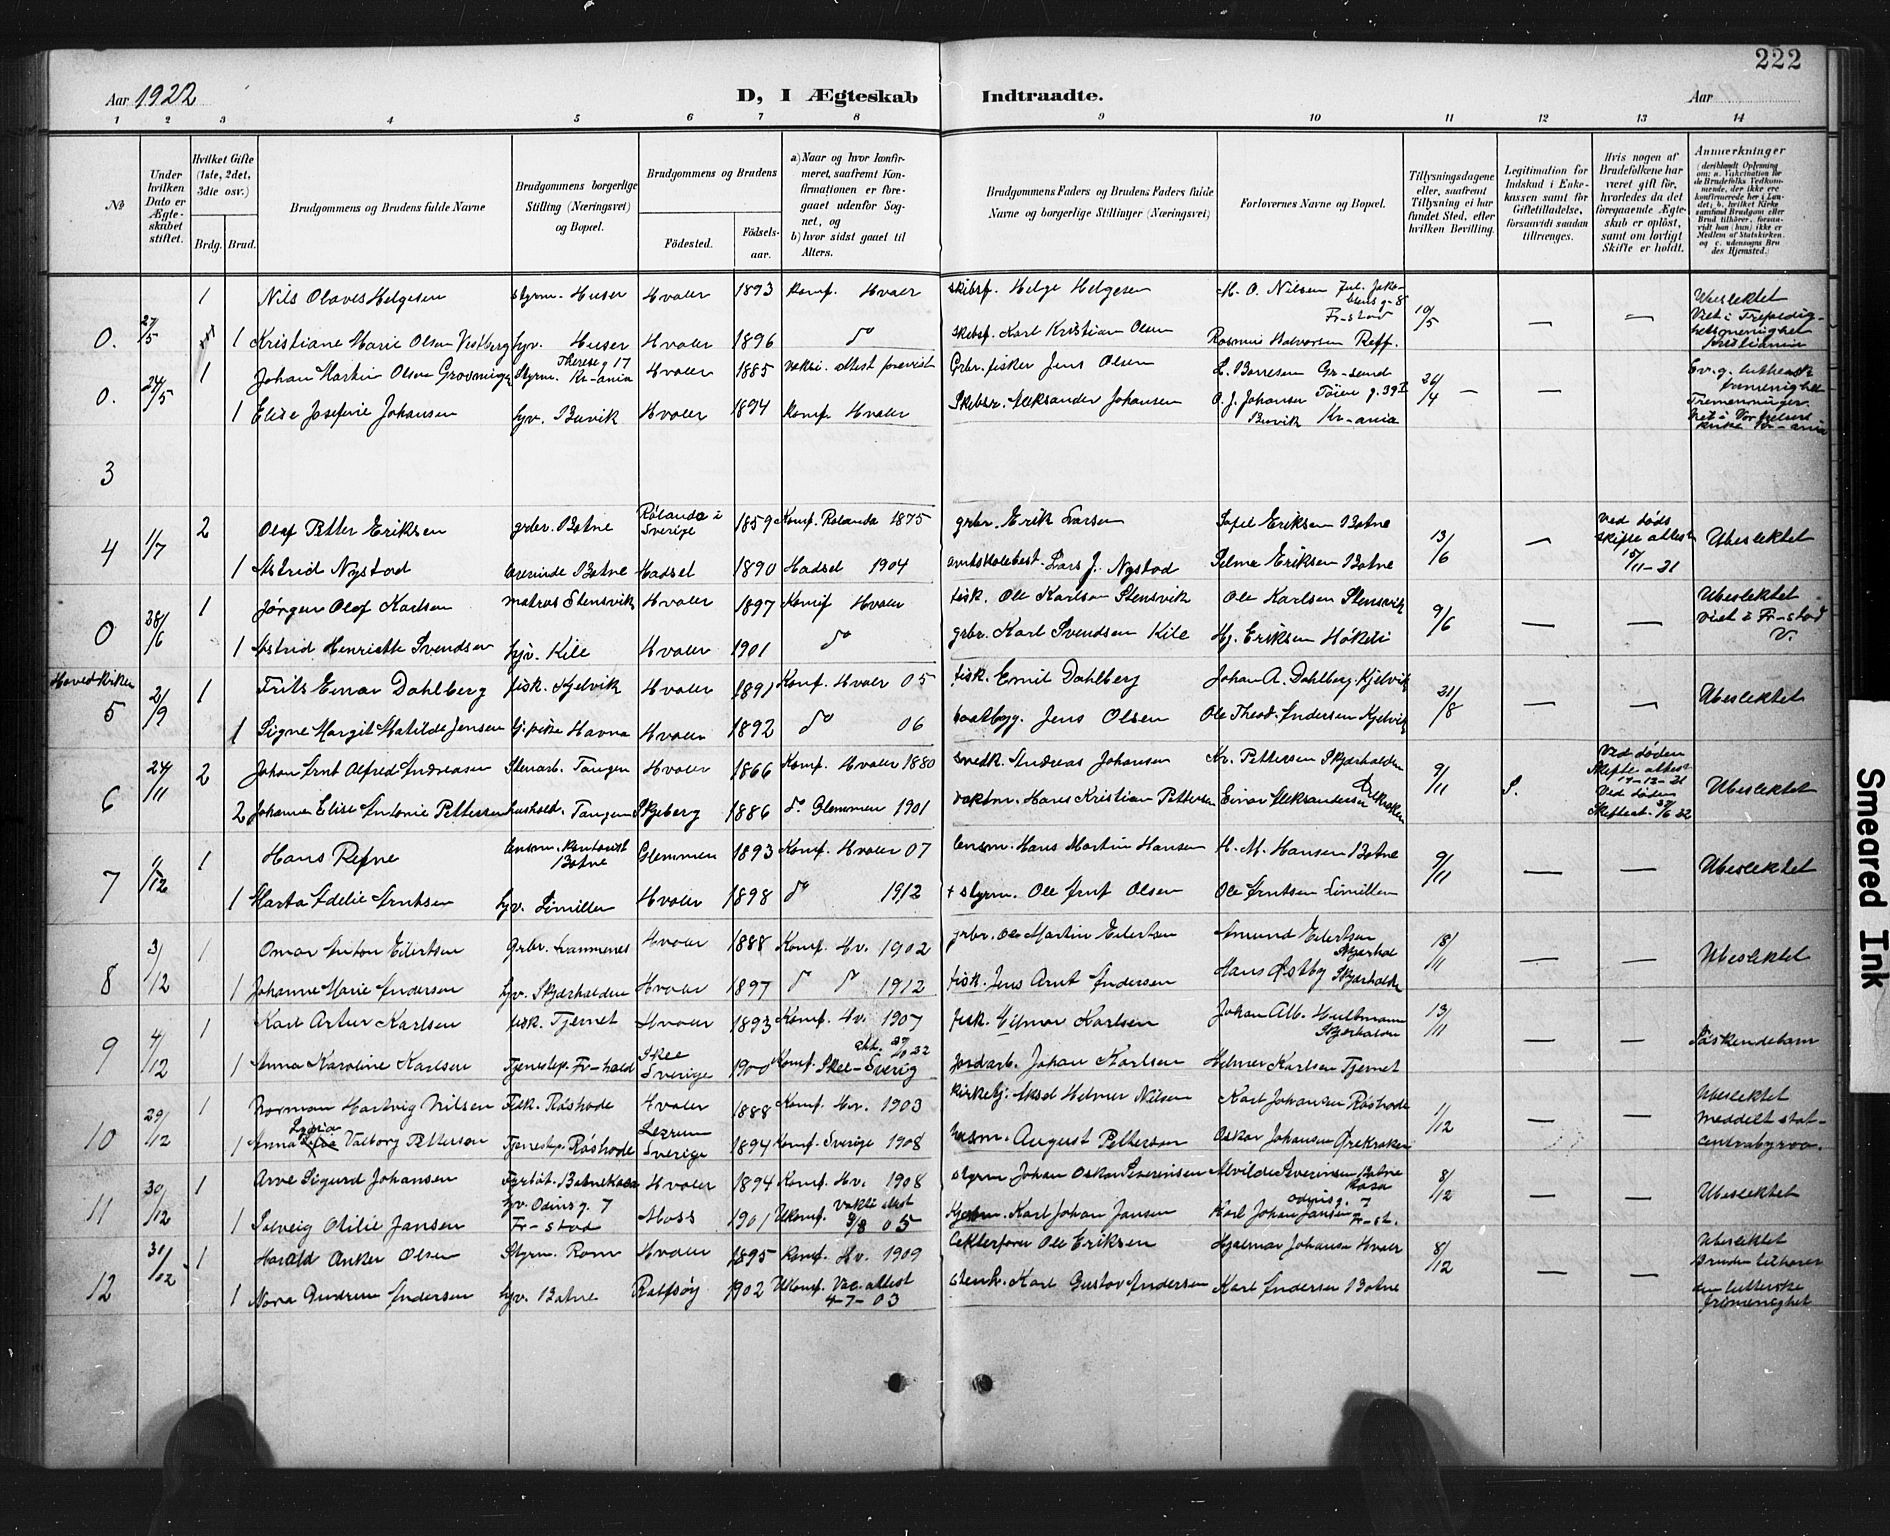 222
Aar 1922
D, I Ægteskab Indtraadte.
Aar
1 2 3 4 5 6 7 8 9 10 11 12 13 14
No
Under hvilken Dato er Ægteskabet stiftet.
Hvilket Gifte (1ste, 2det, 3die osv.)
Brdg. Brud.
Brudgommens og Brudens fulde Navne
Brudgommens borgerlige Stilling (Næringsvei) og Bopæl.
Brudgommens og Brudens
Fødested.
Fødselsaar.
a) Naar og hvor konfirmeret, saafremt Konfirmationen er foregaaet udenfor Sognet, og
b) hvor sidst gaaet til Alters.
Brudgommens Faders og Brudens Faders fulde Navne og borgerlige Stillinger (Næringsvei)
Forlovernes Navne og Bopæl.
Tillysningsdagene eller, saafremt Tillysning ei har fundet Sted, efter hvilken Bevilling.
Legitimation for Indskud i Enkekassen samt for Giftetilladelse, forsaavidt saadan tiltrænges.
Hvis nogen af Brudefolkene har været gift før, hvorledes da det foregaaende Ægteskab er opløst, samt om lovligt Skifte er holdt.
Anmærkninger
(deriblandt Oplysning om: a. Vakcination for de Brudefolks Vedkommende, der ikke ere konfirmerede her i Landet; b. hvilket Kirkesamfund Brudgom eller Brud tilhører, forsaavidt han (hun) ikke er Medlem af Statskirken, og c. udensogns Brudes Hjemsted.)
0. 27/5 1 Nils Olaves Helgesen styrm. Huser Hvaler 1893 konf. Hvaler skibsf. Helge Helgesen M. O. Nilsen Fr-stad 10/5 — — Ubeslektet
1 Kristiane Marie Olsen Vestberg hjv. Huser Hvaler 1896 do skibsf. Karl Kristian Olsen Rasmus Halvorsen Reff.
0. 24/5 1 Johan Martin Olsen Styrm. Therese g. 17 Kr-ania Hvaler 1885 Grbr. fisker Jens Olsen 26/4 — — —
1 Elise Josefine Johansen hjv. Buvik Hvaler 1894 konf. Hvaler Aleksander Johansen O. J. Johansen Buvik Kr-ania
3
4 1/7 2 Olaf Petter Eriksen grbr. Botne Rölanda i Sverige 1859 Konf. Rölanda 1875 grbr. Erik Larsen Sofie Eriksen Botne 13/6 — Ved døds skifte attest 15/11-21 Ubeslektet
1 Astrid Nystad Botne Hadsel 1890 Hadsel 1904 Lars J. Nystad Selma Eriksen Botne
0 28/6 1 Jørgen Olaf Karlsen matros Stensvik Hvaler 1897 Konf Hvaler fisk. Ole Karlsen Stensvik Ole Karlsen Stensvik 9/6 — — Ubeslektet viet i Fr-stad V.
1 Astrid Henriette Svendsen hjv. Kile Hvaler 1901 do grbr. Karl Svendsen Kile Hj. Eriksen
Hovedkirken
5 2/9 1 Frits Einar Dahlberg fisk. Kjelvik Hvaler 1891 Konf. Hvaler 05 fisk. Emil Dahlberg Johan A. Dahlberg Kjelvik 21/8 — — Ubeslektet
1 Signe Margit Matilde Jensen Havna Hvaler 1892 do 06 baatbyg. Jens Olsen Ole Theod. Andersen Kjelvik
6 24/11 2 Johan Arnt Alfred Andreasen Stenarb. Tangen Hvaler 1866 Konf. Hvaler 1880 snedk. Andreas Johansen Kr. Pettersen Skjærhalden 9/11 S. Ved døden Skifte attest 17-12-21 Ubeslektet
2 Johanne Elise Antonie Pettersen hushold. Tangen Skjeberg 1886 do Glemmen 1901 Hans Kristian Pettersen Einar Aleksandersen Ørekroken Ved døden
7 11/12 1 Hans Refne lensm. kontorist Botne Glemmen 1893 Konf. Hvaler 07 lensm. Hans Martin Hansen H. M. Hansen Botne 9/11 — — Ubeslektet
1 Marta Adelie Arntsen hjv. Hvaler 1898 do 1912 + styrm. Ole Arnt Olsen Ole Arntsen
8 3/12 1 Omar Anton Eilertsen Grbr. Hvaler 1888 Konf. Hv. 1902 grbr. Ole Martin Eilertsen Amund Eilertsen Skjærhal 18/11 — — Ubeslektet
1 Johanne Marie Andersen hjv. Skjærhalden Hvaler 1897 do do 1912 fisk. Jens Arnt Andersen Hans Østby Skjærhalden
9 4/12 1 Karl Artur Karlsen fisk. Tjernet Hvaler 1893 Konf. Hv. 1907 fisk. Hilmar Karlsen Johan Alb. Hultmann Skjærhalden 13/11 — — Søskendebarn
1 Anna Karoline Karlsen Tjenestep. Fr-hald Skee Sverige 1900 Konf. Skee-Sverig jordarb. Johan Karlsen Helmer Karlsen Tjernet
10 29/12 1 Norman Hartvig Nilsen Fisk. Røshode Hvaler 1888 Konf. Hv. 1903 kirkebj. Aksel Helmer Nilsen Karl Johansen Røshode 1/12 — — Ubeslektet meddelt stat-centralbyraa.
1 Anna Valborg Petterson Tjenestep. Røshode Sverige 1894 Konf. Sverige 1908 August Pettersen Oskar Johansen Ørekroken
11 30/12 1 Arve Sigurd Johansen Hvaler 1894 Konf. Hv. 1908 styrm Johan Oskar Severinsen Alvilde Severinsen Botne 8/12 — — Ubeslektet
1 Solveig Otilie Jansen hjv. Odins g. 7 Fr-stad Moss 1901 Ukonf. vakc. attest 9/8 05 Karl Johan Jansen Karl Johan Jansen Odins g. 7 Fr-st.
12 30/12 1 Harald Anker Olsen Styrm. Rom Hvaler 1895 konf. Hv. 1909 Ole Eriksen Hjalmar Johansen Hvaler 8/12 — — Ubeslektet Bruden tilhører den lutherske frimenighet
1 Nora Gudrun Andersen hjv. Botne Rolfsøy 1902 Ukonf. Vac. attest 4-7-03 stenh. Karl Gustav Andersen Karl Andersen Botne
Smeared Ink